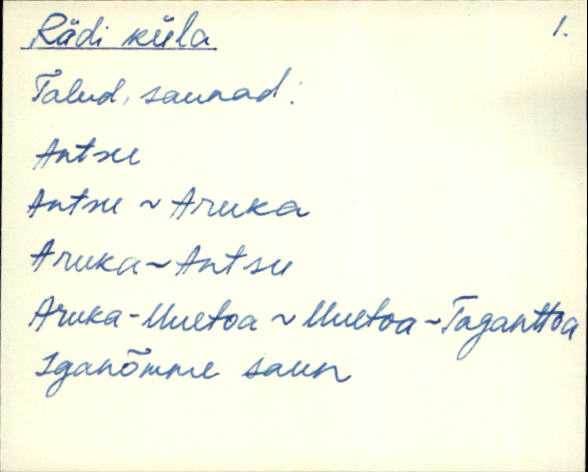 Rädi küla 1.
Talud, saunad:
Antsu
Antsu ~ Aruka
Aruka ~ Antsu
Aruka-Uuetoa ~ Uuetoa ~ Taganttoa
Iganõmme saun